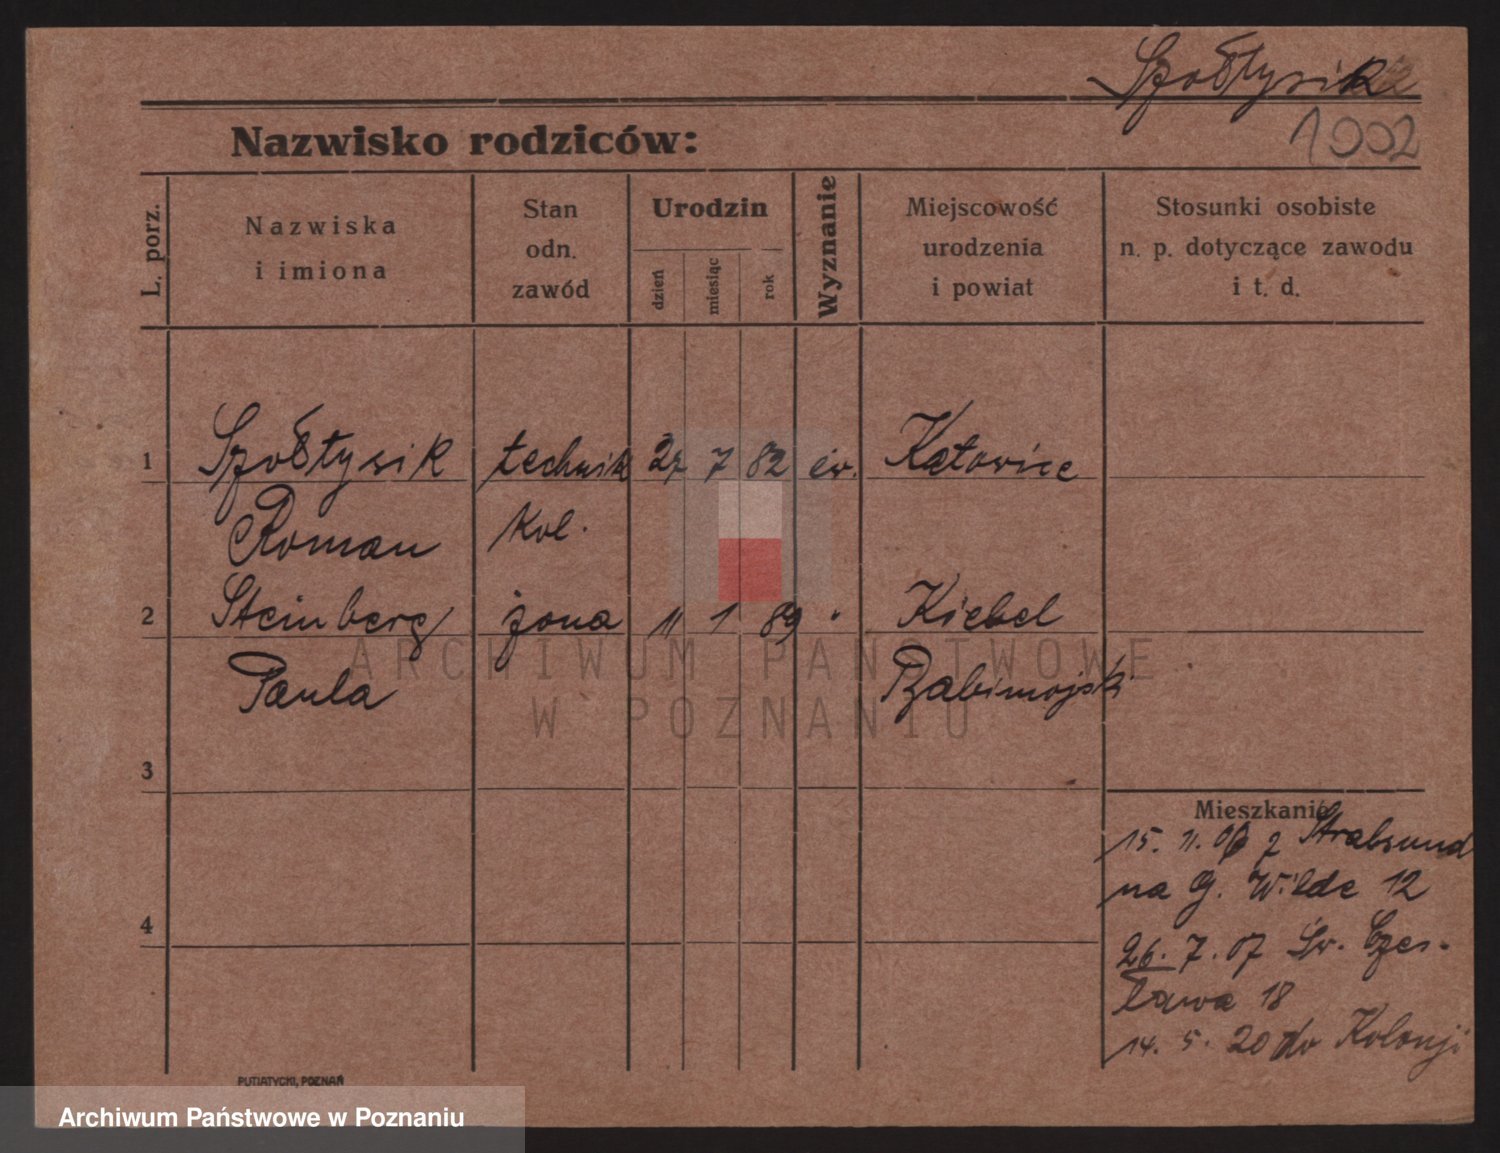 Szołtysik
1002
Nazwisko rodziców:
L. porz.
Nazwiska
i imiona
Stan
odn.
zawód
Urodzin
dzień
miesiąc
rok
Wyznanie
Miejscowość
urodzenia
i powiat
Stosunki osobiste
n. p. dotyczące zawodu
i t. d.
1 Szołtysik technik 27 7 82 ew. Katowice
Roman kol.
2 Steinberg żona 11 1 89 " Kiebel
Paula Babimojski
3
4
Mieszkanie
15. 11. 06 z Stralsund
na G. Wilde 12
26. 7. 07 Św. Czes-
ława 18
14. 5. 20 do Kolonji
PUTIATYCKI, POZNAŃ
ARCHIWUM PAŃSTWOWE
W POZNANIU
Archiwum Państwowe w Poznaniu